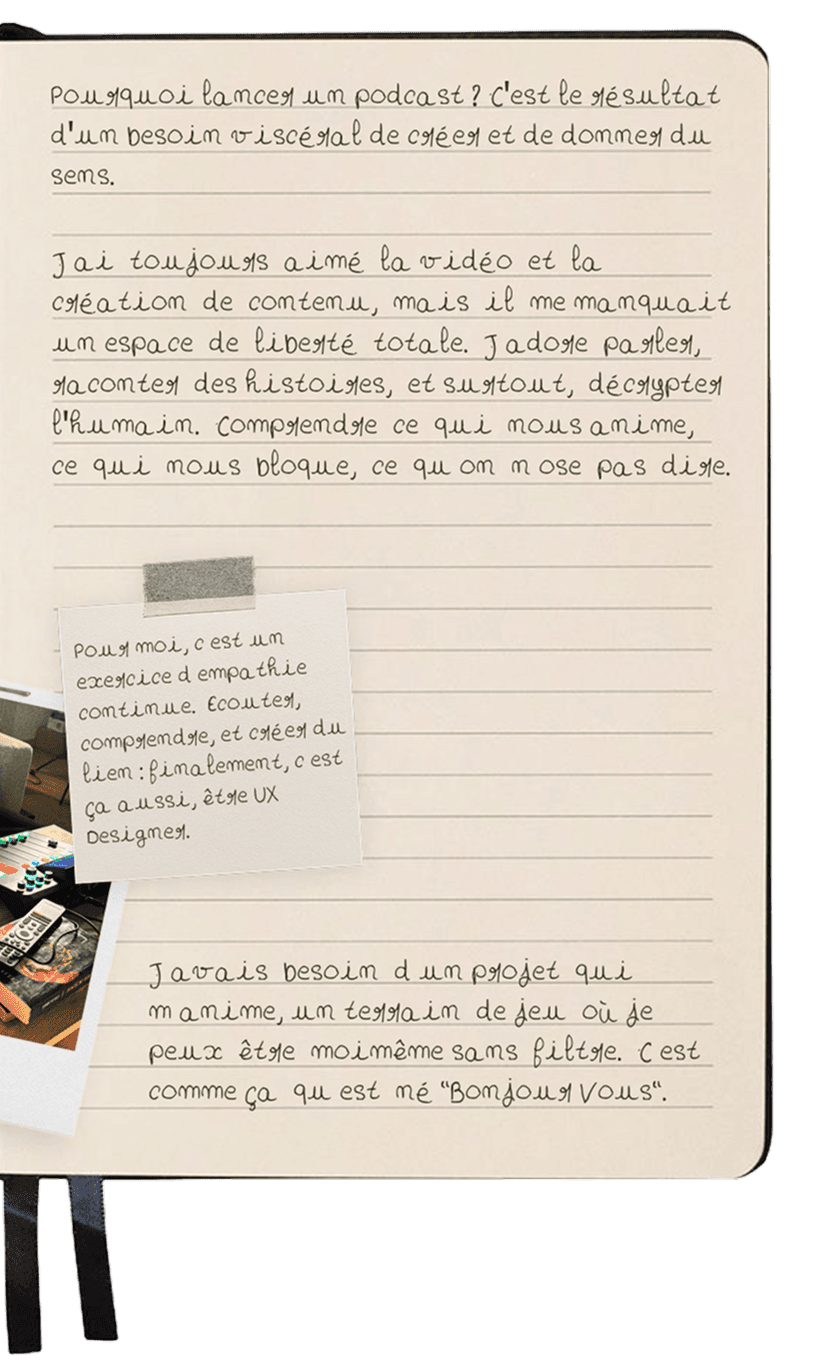 Pourquoi lancer un podcast ? C'est le résultat
d'un besoin viscéral de créer et de donner du
sens.
J ai toujours aimé la vidéo et la
création de contenu, mais il me manquait
un espace de liberté totale. J adore parler,
raconter des histoires, et surtout, décrypter
l'humain. Comprendre ce qui nous anime,
ce qui nous bloque, ce qu on n ose pas dire.
Pour moi, c est un
exercice d empathie
continue. Ecouter,
comprendre, et créer du
lien : finalement, c est
ça aussi, être UX
Designer.
J avais besoin d un projet qui
m anime, un terrain de jeu où je
peux être moimême sans filtre. C est
comme ça qu est né "Bonjour Vous".